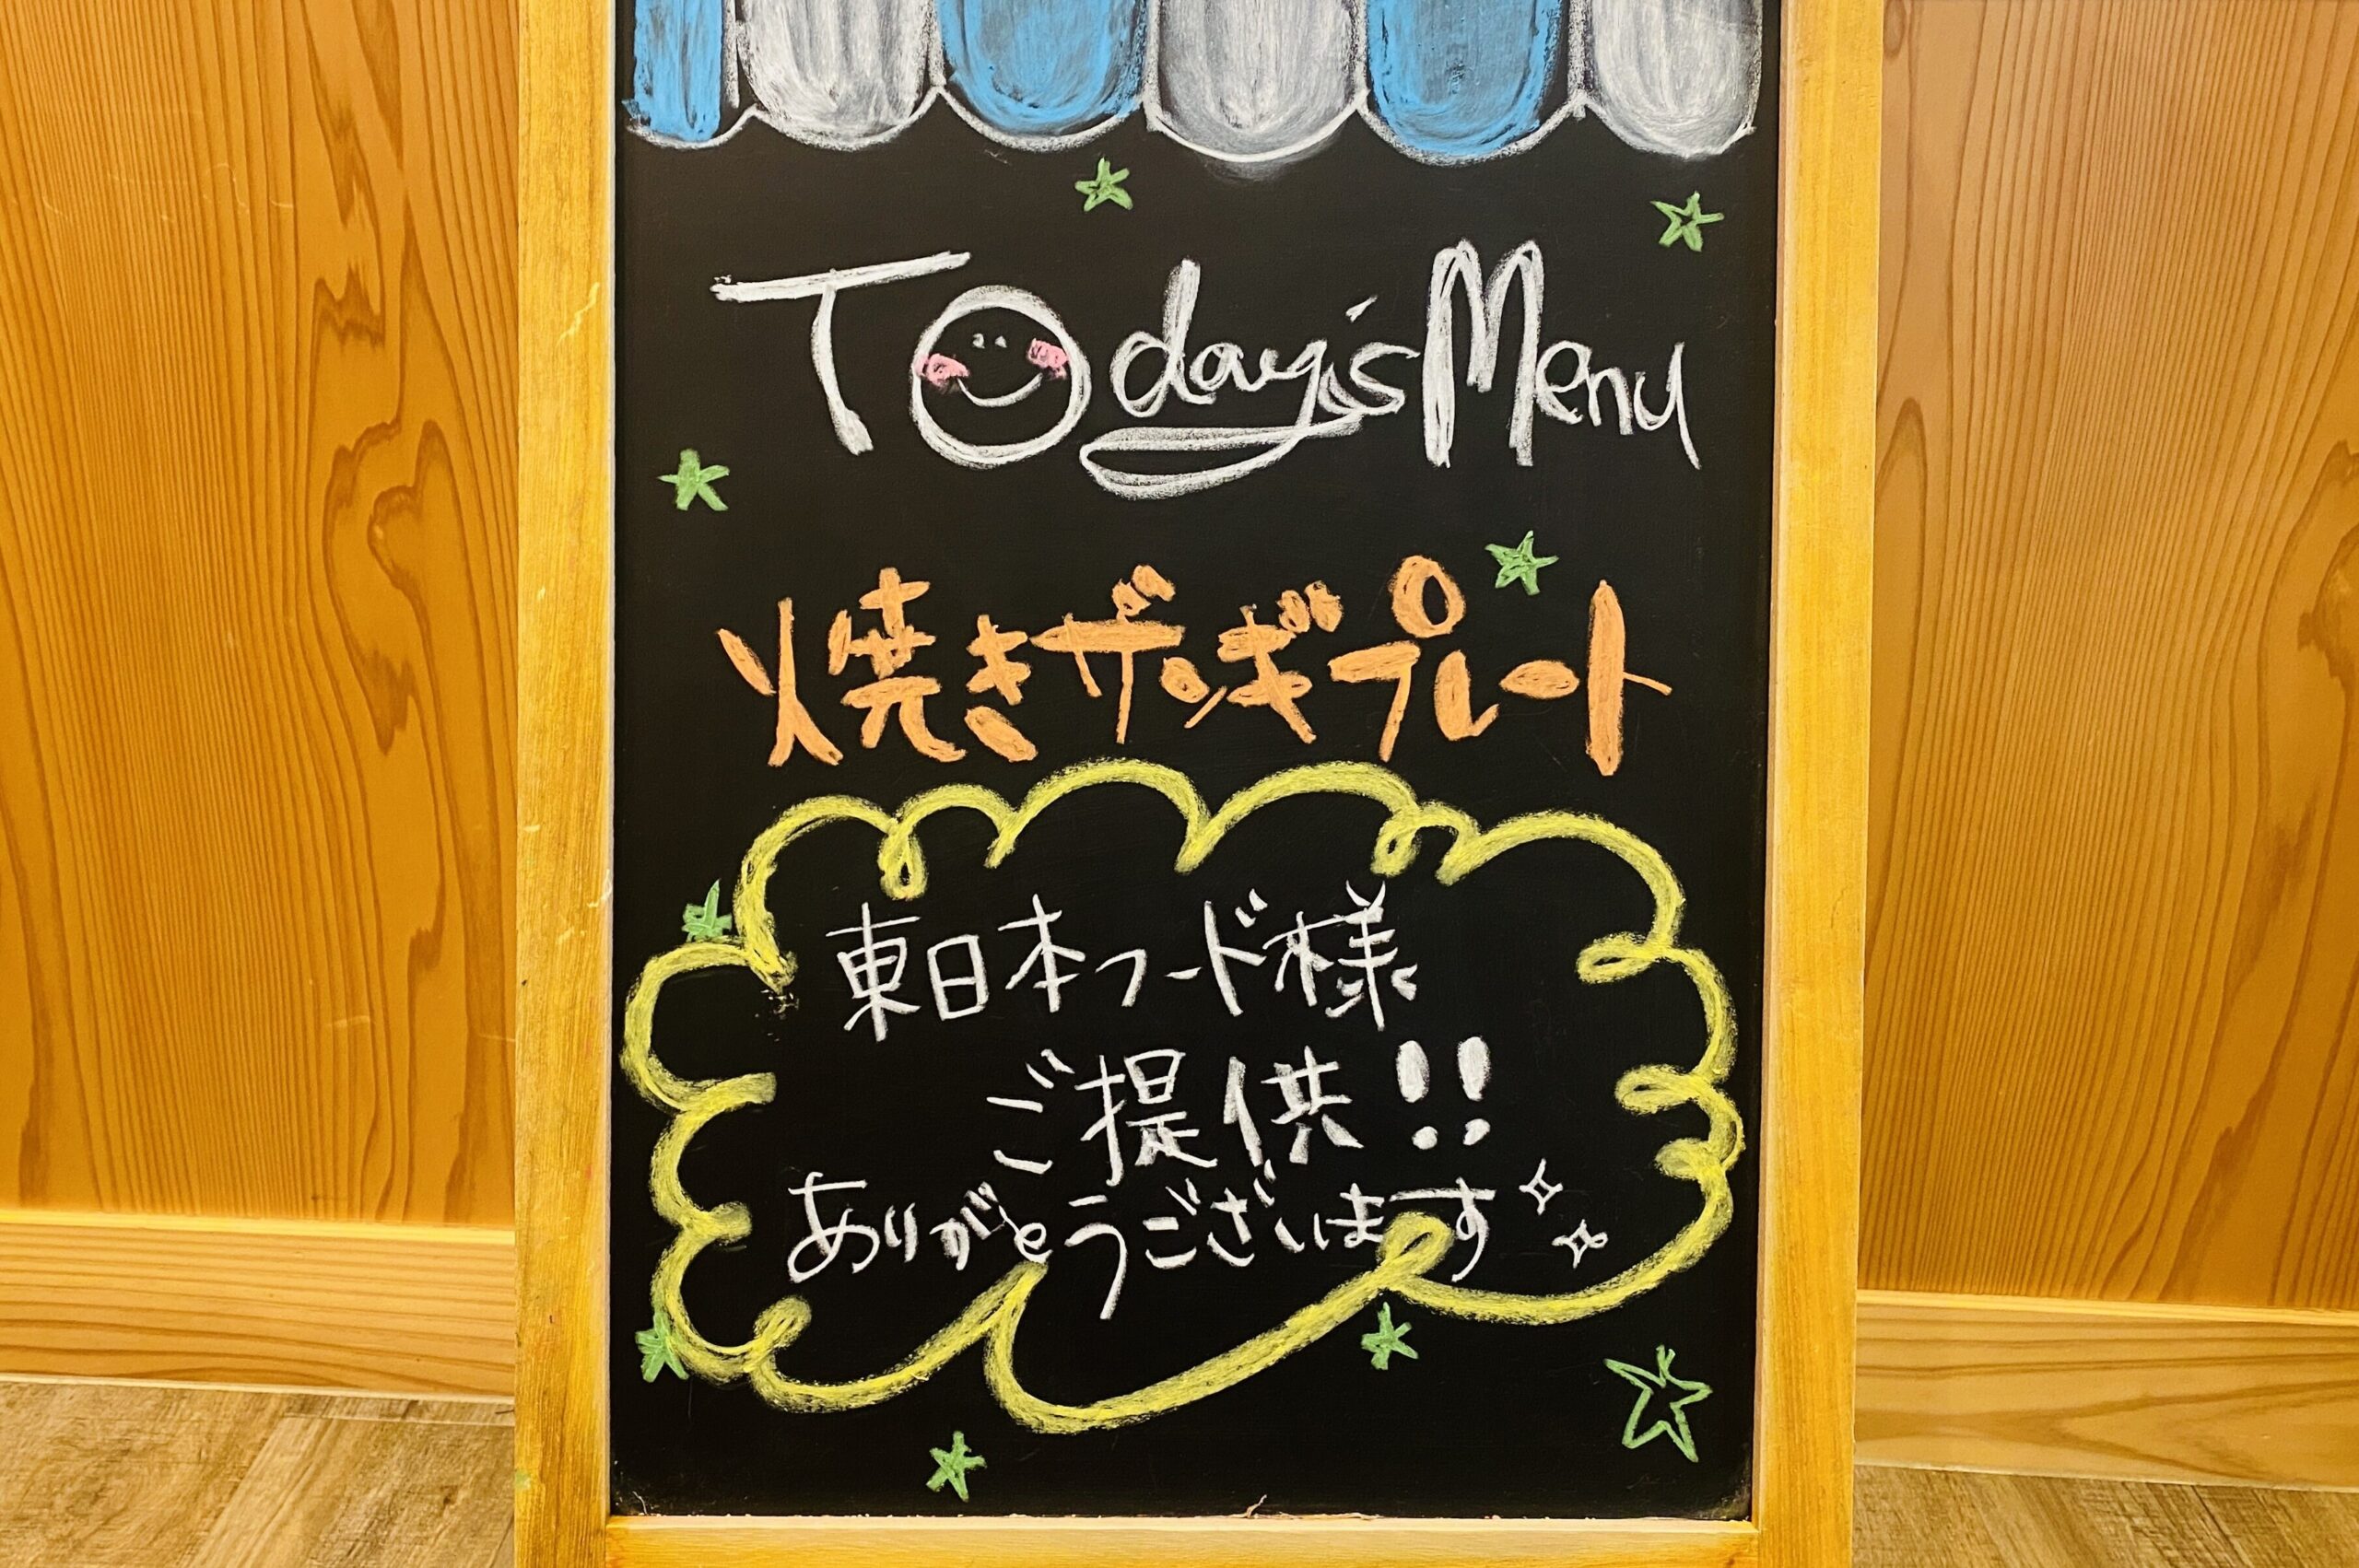 Today's Menu
焼きザンギプレート
東日本フード様
ご提供!!
ありがとうございます